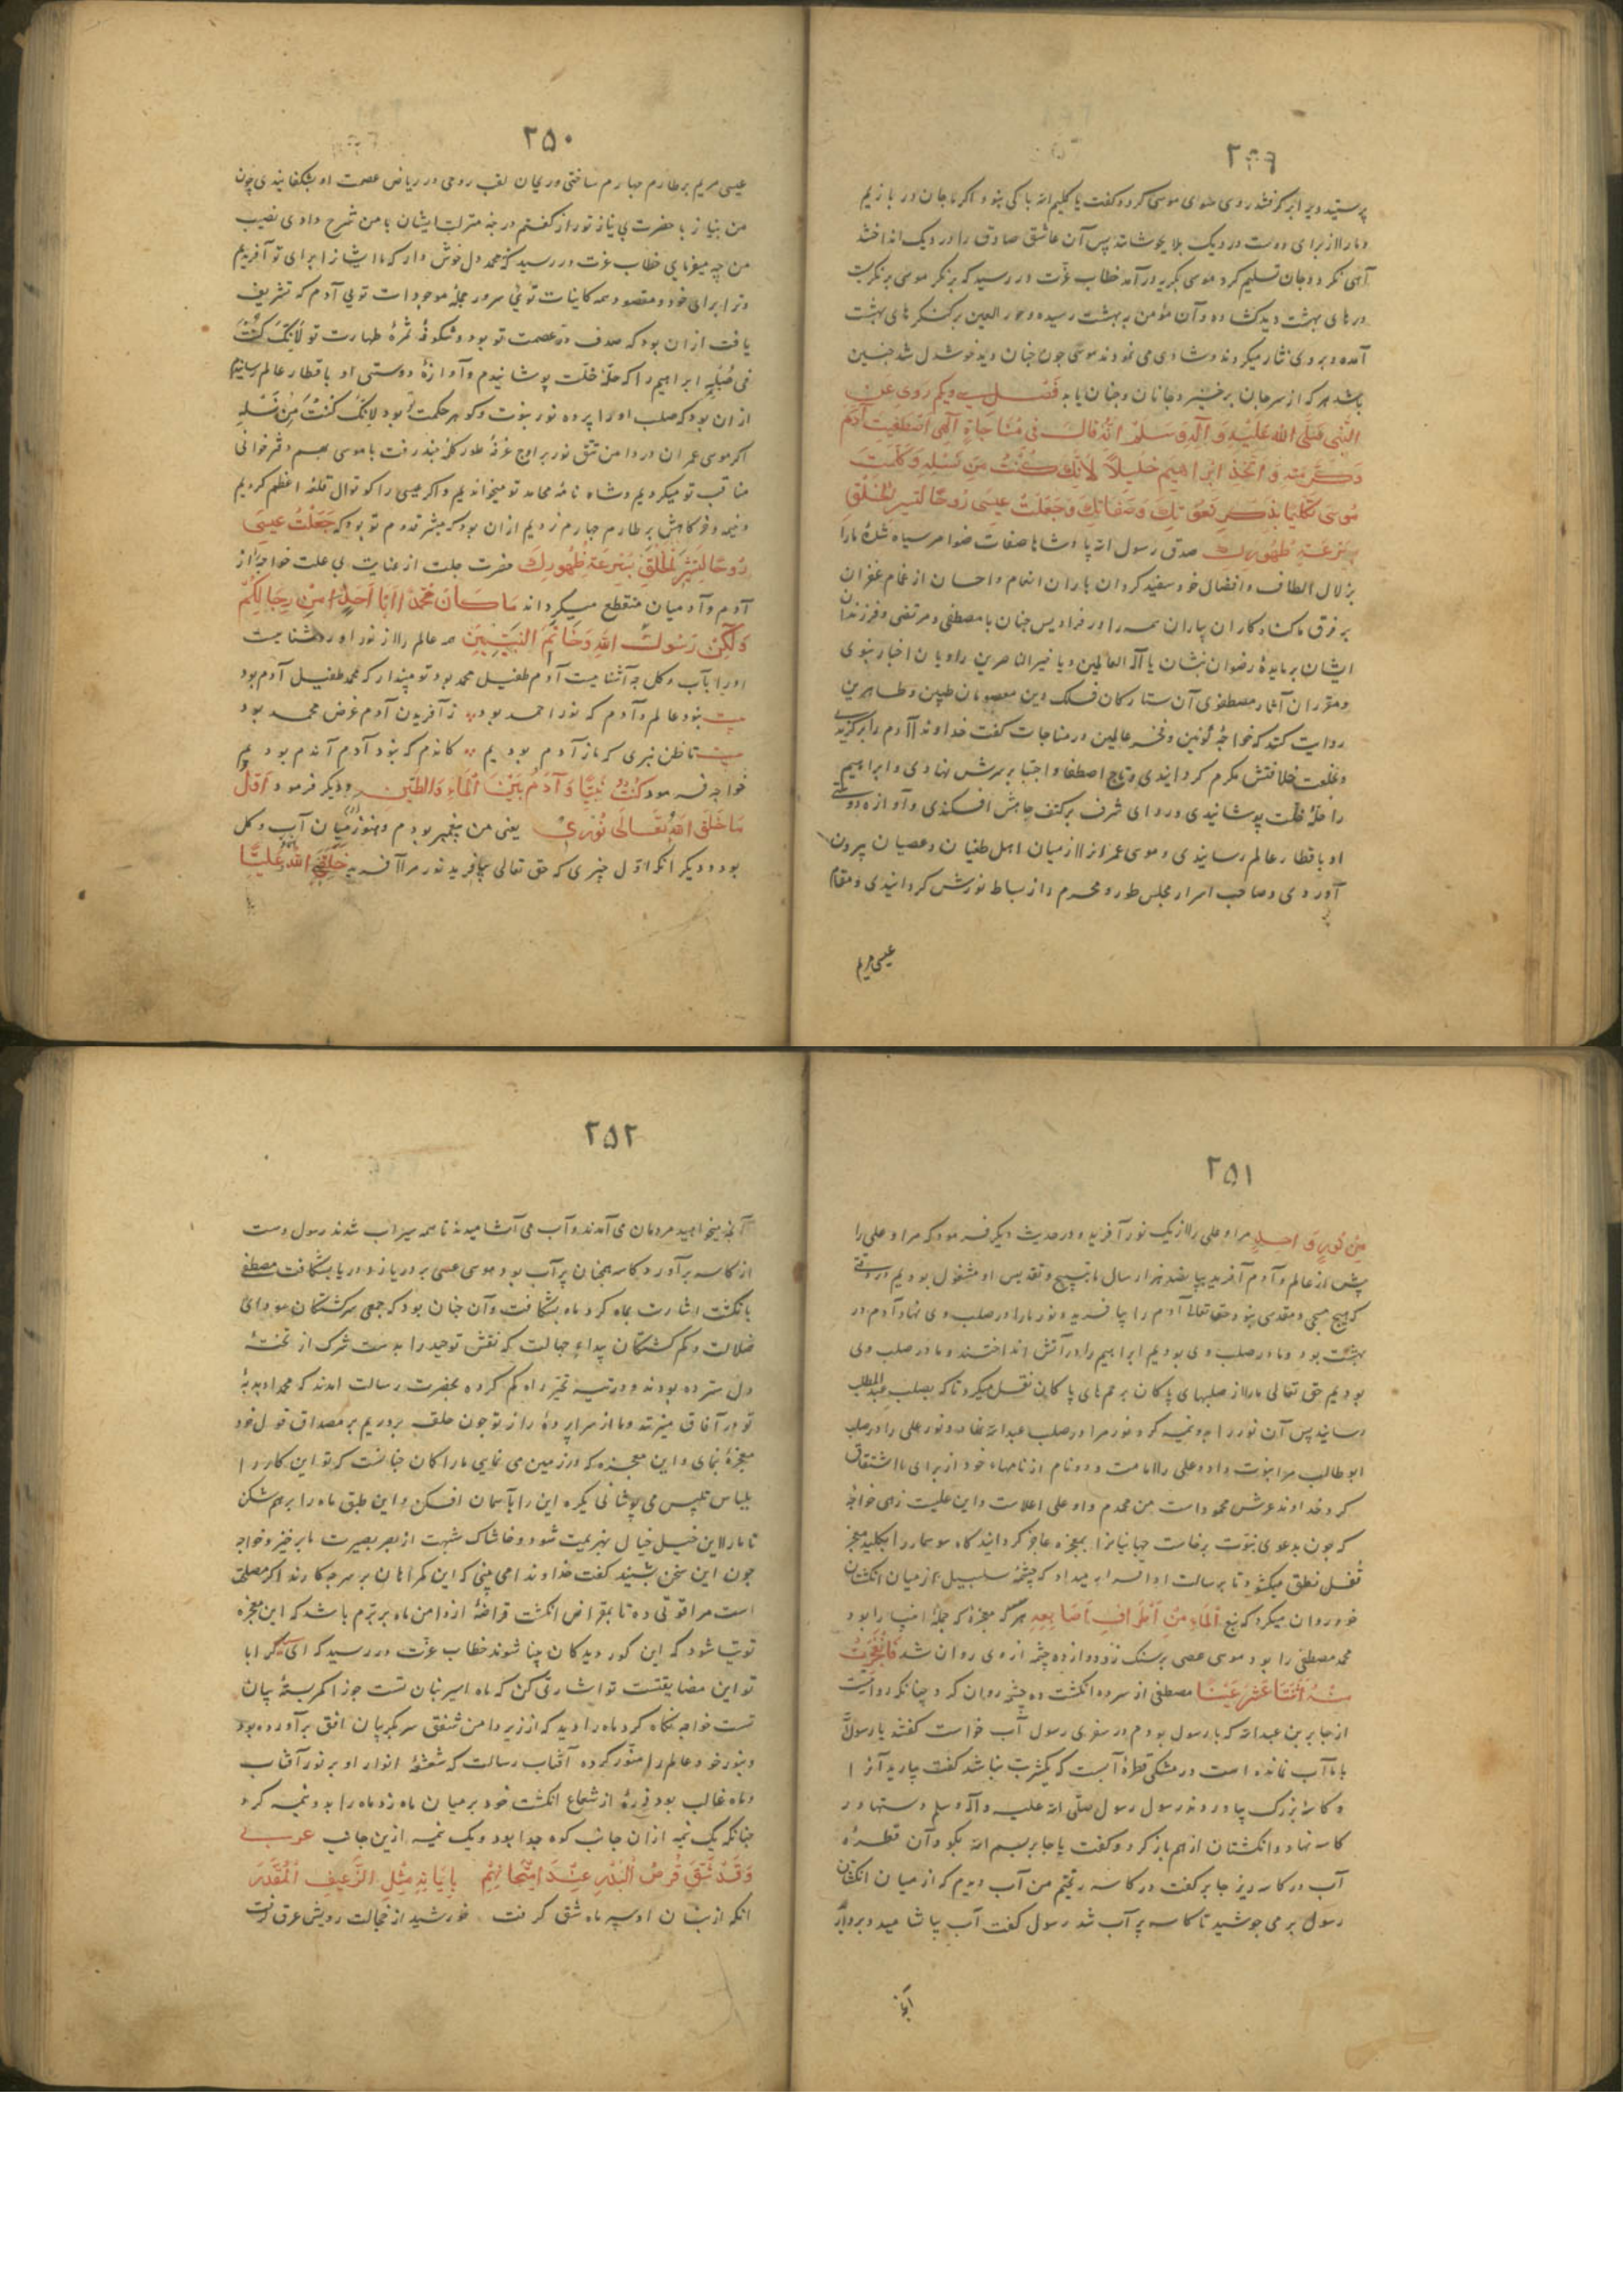 ۲۴۹
پرستید ویرا برگرفتند روی سوی موسی کرد و گفت یا کلیم الله باکی نبود اگر ما جان در بازیم
و ما را از برای دوست در دیک بلا بجوشانند پس آن عاشق صادق را در دیک انداختند
آهی نکرد و جان تسلیم کرد موسی بگریه در آمد خطاب عزّت در رسید که برنکر موسی برنکریست
درهای بهشت دید کشاده و آن مؤمن به بهشت رسیده و حور العین بر کنکرهای بهشت
آمده و بروی نثار میکردند و شادی می نمودند موسی چون چنان دید خوشدل شد چنین
باشد هر که از سر جان برخیزد جانان و جنان یابد فصل سی و یکم روی عن
النّبی صَلّی الله عَلَیْهِ وَ آلِهِ وَ سَلَّمَ اَنَّهُ قالَ فی مُناجاتِهِ اِلهی اصْطَفَیْتَ آدَمَ
وَ کَرَّمْتَهُ وَ اتَّخَذْتَ اِبْراهیمَ خَلیلاً لِاَنَّکَ کُنْتُ مِنْ نَسْلِهِ وَ کَلَّمْتَ
مُوسی تَکْلیمًا بِذِکْرِ نُعُوتِکَ وَ صِفاتِکَ وَ جَعَلْتَ عیسی رُوحًا لِیُبَشِّرَ الْخَلْقَ
بِسُرْعَةِ ظُهُورِکَ صدق رسول الله پادشاها صفات ضمایر سیاه شدهٔ ما را
بزلال الطاف و افضال خود سفید کردان باران انعام و احسان از غمام غفران
بر فرق ما گناه کاران باران همه را در فرادیس جنان با مصطفی و مرتضی و فرزندان
ایشان بر مایدهٔ رضوان بنشان یا آله العالمین و یا خیر الناصرین راویان اخبار نبوی
و مقرران آثار مصطفوی آن ستارکان فلک دین معصومان طیبین و طاهرین
روایت کنند که خواجهٔ کونین و فخر عالمین در مناجات گفت خداوندا آدم را برگزیدی
و بخلعت خلافتش مکرم کردانیدی و تاج اصطفا و اجتبا بر سرش نهادی و ابراهیم
را حلّهٔ خلّت پوشانیدی و ردای شرف بر کتف جاهش افکندی و آوازه دوستی
او باقطار عالم رسانیدی و موسی عمران را از میان اهل طغیان و عصیان بیرون
آوردی و صاحب اسرار مجلس طور و محرم راز بساط نورش کردانیدی و مقام
عیسی مریم
۲۵۰
عیسی مریم بر طارم چهارم ساختی و ریحان لقب روحی در ریاض عصمت او بشکفانیدی چون
من بنیاز با حضرت بی نیاز تو راز گفتم درجه منزلت ایشان با من شرح دادی نصیب
من چه میفرمایی خطاب عزت در رسید که محمد دل خوش دار که ما ایشانرا برای تو آفریدیم
و ترا برای خود و مقصود همه کاینات توئی سرور جملهٔ موجودات تویی آدم که تشریف
یافت ازان بود که صدف درّ عصمت تو بود و شکوفهٔ ثمرهٔ طهارت تو لِاَنَّکَ کُنْتَ
فی صُلْبِهِ ابراهیم را که حلّهٔ خلّت پوشانیدم و آوازهٔ دوستی او باقطار عالم رسانیدم
ازان بود که صلب او را پرده نور نبوت و گوهر حکمت تو بود لِاَنَّکَ کُنْتَ مِنْ نَسْلِهِ
اکر موسی عمران در دامن تتق نور بر اوج غرفهٔ طور کله بند رفت با موسی بسم دفتر خوانی
مناقب تو میکردیم و شاه نامهٔ محامد تو میخواندیم و اکر عیسی را کوتوال قلعه اعظم کردیم
و خیمه و خرکاهش بر طارم چهارم زدیم ازان بود که مبشر قدوم تو بود که جَعَلْتُ عیسَی
رُوحًا لِیُبَشِّرَ الْخَلْقَ بِسُرْعَةِ ظُهُورِکَ حضرت جلت از عنایت بی علت خواجه را از
آدم و آدمیان منقطع میکرداند مَا کَانَ مُحَمَّدٌ اَبَا اَحَدٍ مِنْ رِجَالِکُمْ
وَلکِنْ رَسُولَ اللهِ وَ خَاتَمَ النَّبِیّینَ همه عالم را از نور او روشناییست
او را بآب و کل چه آشناییست آدم طفیل محمد بود تو مپندار که محمد طفیل آدم بود
بیت نبود عالم و آدم که نور احمد بود ز آفریدن آدم غرض محمد بود
بیت تا ظن نبری که ما ز آدم بودیم کاندم که نبود آدم آندم بودیم
خواجه فرمود کُنْتُ نَبِیًّا وَ آدَمُ بَیْنَ الْمَاءِ وَ الطّینِ و دیکر فرمود اَوَّلُ
مَا خَلَقَ اللهُ تَعَالَی نُوری یعنی من پیغمبر بودم و هنوز آدم میان آب و کل
بود و دیکر انکه اوّل چیزی که حق تعالی بیافرید نور مرا آفرید خَلَقَنِیَ اللهُ وَ عَلِیًّا
۲۵۱
مِنْ نُورٍ وَاحِدٍ مرا و علی را از یک نور آفرید و در حدیث دیکر فرمود که مرا و علی را
پیش از عالم و آدم آفرید بپانصد هزار سال ما بتسبیح و تقدیس او مشغول بودیم در وقتی
که هیچ مسبحی و مقدسی نبود حقتعالی آدم را بیافرید و نور ما را در صلب وی نهاد آدم در
بهشت بود و ما در صلب وی بودیم ابراهیم را در آتش انداختند و ما در صلب وی
بودیم حق تعالی ما را از صلبهای پاکان برحمهای پاکان نقل میکرد تا که بصلب عبد المطلب
رسانید پس آن نور را بدو نیمه کرد نور مرا در صلب عبد الله نهاد و نور علی را در صلب
ابو طالب مرا نبوت داد و علی را امامت و دو نام از نامهاء خود از برای ما اشتقاق
کرد خداوند عرش محمود است من محمدم و او علی اعلاست و این علیست زهی خواجهٔ
که چون بدعوی نبوّت برخاست جهانیانرا بمعجزه عاجز کردانید کاه سوسمار را بکلید معجز
قفل نطق میکشود تا برسالت او اقرار میداد که چشمهٔ سلسبیل از میان انکشتان
خود روان میکرد که نبع اَلْمَاءِ مِنْ اَطْرَافِ اَصَابِعِهِ هر معجزهٔ که جملهٔ انبیا را بود
محمد مصطفی را بود موسی عصی بر سنک زد دوازده چشمه از وی روان شد فَانْفَجَرَتْ
مِنْهُ اثْنَتَا عَشْرَةَ عَیْنًا مصطفی از سر ده انکشت ده چشمه روان کرد چنانکه روایتست
از جابر بن عبدالله که با رسول بودم در سفری رسول آب خواست گفتند یا رسول الله
با ما آب نمانده است در مشکی قطرهٔ آبست که یکشربت نباشد گفت بیارید آنرا
و کاسهٔ بزرک بیاوردند رسول رسول صلّی الله علیه و آله وسلم دستها در
کاسه نهاد و انکشتان از هم باز کرد و گفت یا جابر بسم الله بکو و آن قطرهٔ
آب در کاسه ریز جابر گفت در کاسه ریختم من آب دیدم که از میان انکشتان
رسول برمی جوشید تا کاسه پر آب شد رسول گفت آب بیاشامید و بردارید
آنچه
۲۵۲
آنچه میخواهید مردمان می آمدند و آب می آشامیدند تا همه سیراب شدند رسول دست
از کاسه برآورد و کاسه همچنان پر آب بود موسی عصی بر دریا زد و دریا بشکافت مصطفی
بانکشت اشارت بماه کرد ماه بشکافت و آن چنان بود که جمعی سرکشتکان سودای
ضلالت و کم کشتکان بیداء جهالت که نقش توحید را بدست شرک از تختهٔ
دل سترده بودند و در تیه تحیّر راه کم کرده بحضرت رسالت امدند که محمدا دبدبهٔ
تو در آفاق میزنند و ما از سراپردهٔ راز تو چون حلقه بردریم بر مصداق قول خود
معجزهٔ بنمای و این معجزه که در زمین می نمایی ما را کان چنانست که تو این کار را
بلباس تلبیس می پوشانی یکره این را بآسمان افکن و این طبق ماه را برهم شکن
تا ما را این خیل خیال بهزیمت شود و خاشاک شبهت از بصر بصیرت ما برخیزد خواجه
چون این سخن بشنید گفت خداوندا می بینی که این گمراهان بر سر چه کارند اکر مصلحت
است مرا قوتی ده تا بمقراض انکشت قراضهٔ از دامن ماه برتبرم باشد که این معجزه
توتیا شود که این کور دیدکان بینا شوند خطاب عزّت در رسید که ای محمد اکر ایا با
تو این مضایقتست تو اشارتی کن که ماه اسیر بنان تست جوزا کمر بستهٔ بیان
تست خواجه نکاه کرد ماه را دید که از زیر دامن شفق سر بکریبان افق برآورده بود
و بنور خود عالم را منوّر کرده آفتاب رسالت که شعشعهٔ انوار او بر نور آفتاب
و ماه غالب بود ذرهٔ از شعاع انکشت خود بر میان ماه زد ماه را بدو نیمه کرد
چنانکه یک نیمه ازان جانب کوه جدا بود و یک نیمه ازین جانب عربی
وَ قَدْ شُقَّ قُرْصُ الْبَدْرِ عِنْدَ امْتِحَانِهِمْ بِاِیْمَائِهِ مِثْلَ الرَّغِیفِ الْمُقَدَّرَ
انکه از بنان او سپر ماه شق گرفت خورشید از خجالت رویش عرق گرفت